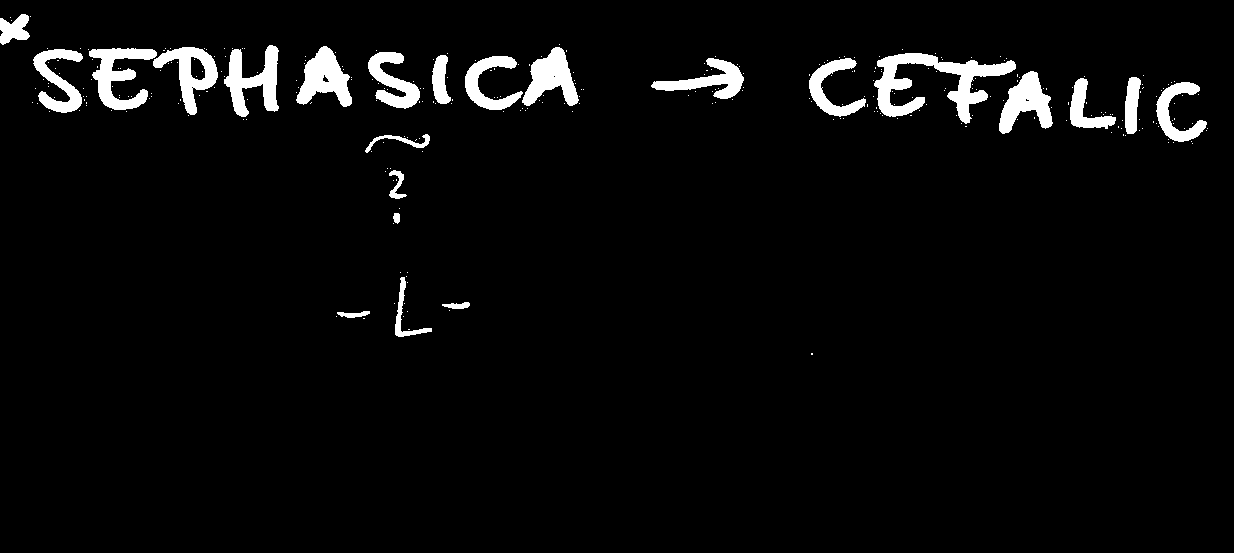 *SEPHASICA → CEFALIC
?
-L-